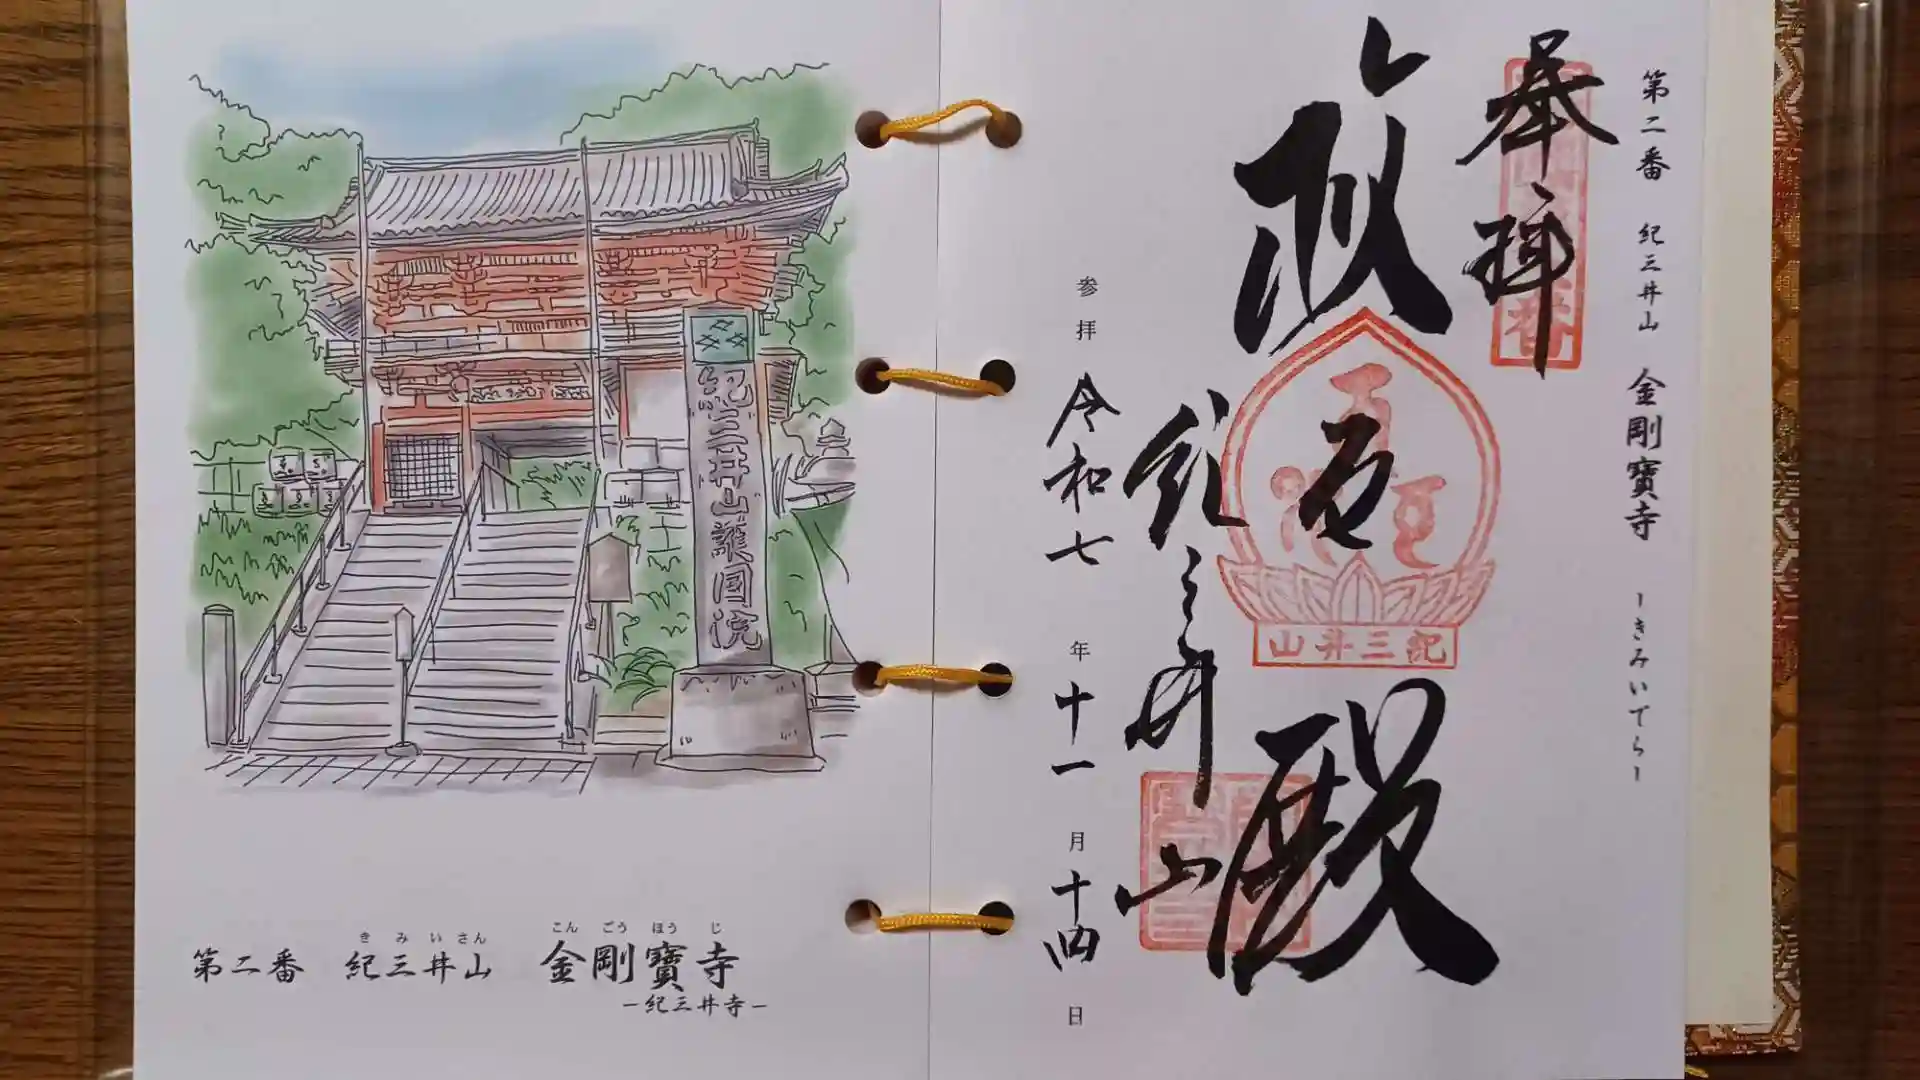 第二番 紀三井山 金剛寶寺 ーきみいでらー
奉拝
救世殿
紀三井山
紀三井山
参拝 令和七年十一月十四日
紀三井山護国院
きみいさん こんごうほうじ
第二番 紀三井山 金剛寶寺
ー紀三井寺ー